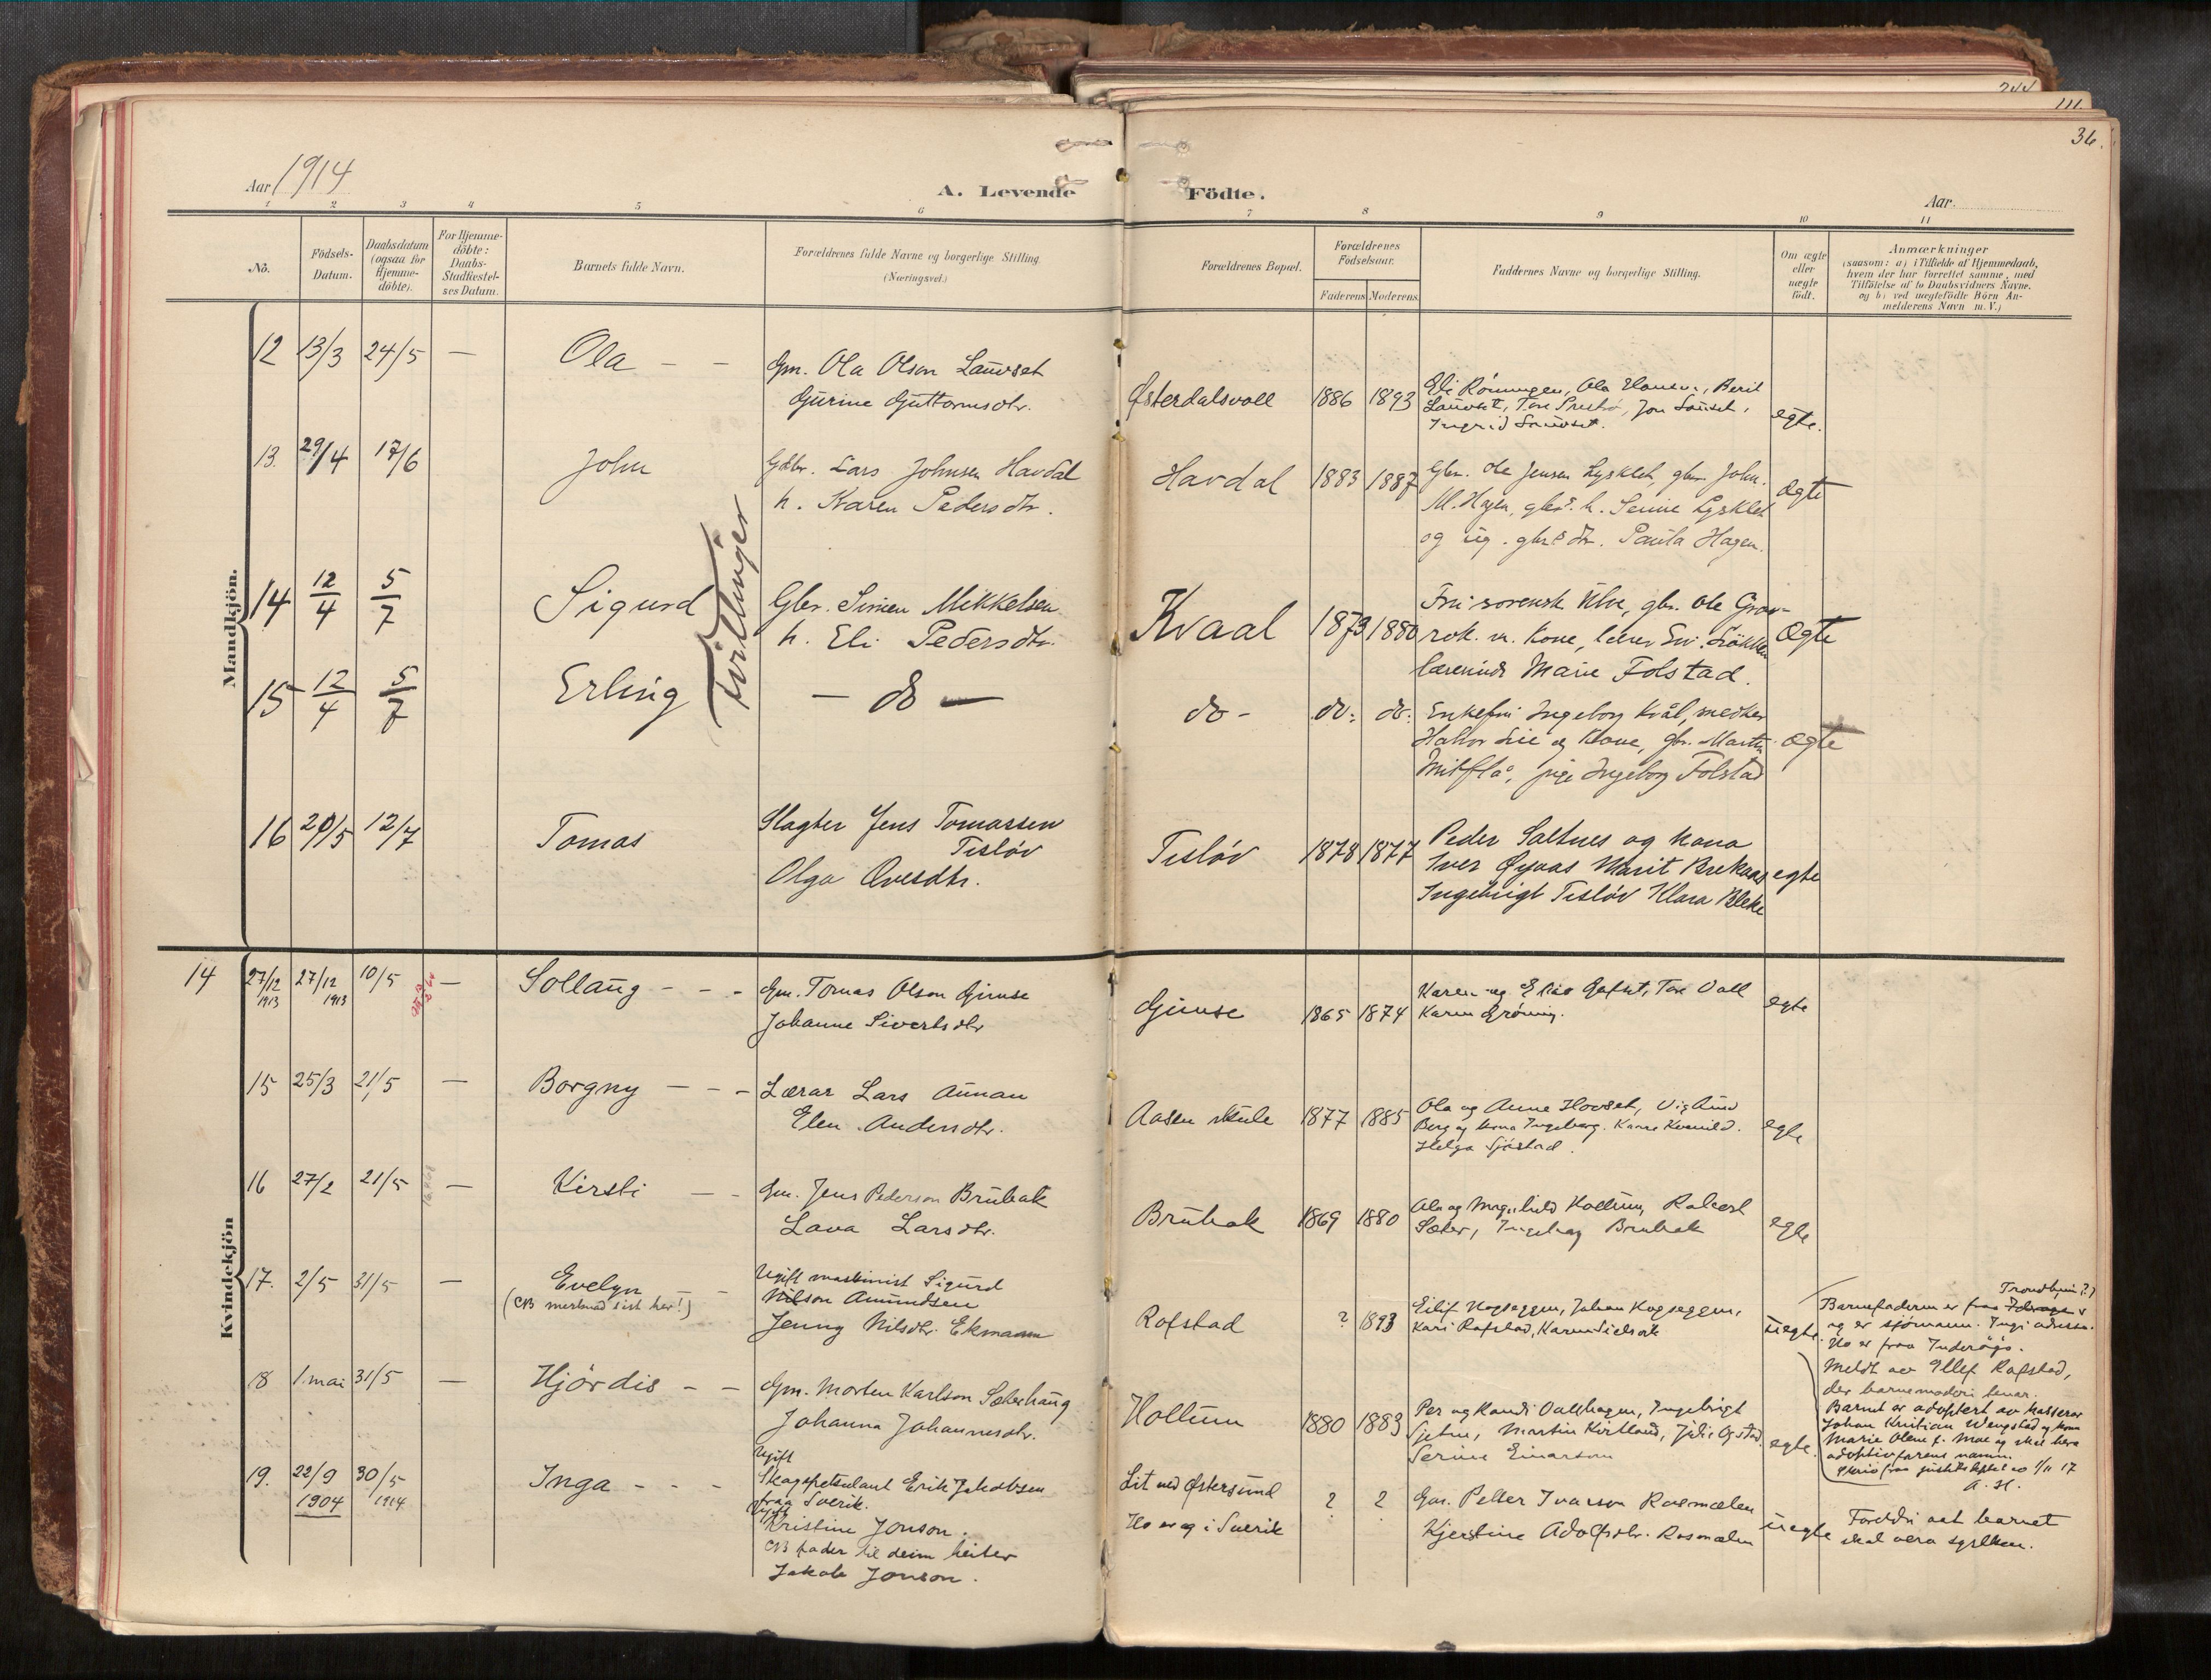 244
111.
36.
Aar 1914
A. Levende Födte.
Aar.
1 2 3 4 5 6 7 8 9 10 11
No.
Födsels-Datum.
Daabsdatum (ogsaa for Hjemme-döbte).
For Hjemme-döbte: Daabs-Stadfæstel-ses Datum.
Barnets fulde Navn.
Forældrenes fulde Navne og borgerlige Stilling
(Næringsvei.)
Forældrenes Bopæl.
Forældrenes Födselsaar.
Faderens Moderens
Faddernes Navne og borgerlige Stilling.
Om ægte eller uægte födt.
Anmærkninger
(saasom: a) i Tilfælde af Hjemmedaab,
hvem der har forrettet samme, med
Tilföielse af to Daabsvidners Navne,
og b) ved uægtefödte Börn An-
melderens Navn m. V.)
Mandkjön.
12 13/3 24/5 — Ola — —
Gm. Ola Olson Lauvset
Gjurine Guttormsdtr.
Østerdalsvoll 1886 1893
Eli Röningen, Ola Hansen, Berit
Lauvset, Tore Prestrø, Jon Lauset,
Ingrid Lauvset.
egte.
13. 29/4 17/6 John
Gdbr. Lars Johnsen Havdal
h. Karen Pedersdtr.
Havdal 1883 1887
Gbr. Ole Jensen Lysklet, gbr. John
M. Hagen, gbrs. h. Senie Lysklet
og ug. gbrs dtr. Paula Hagen.
ægte
14 12/4 5/7 Sigurd
Tvillinger
Gbr. Simen Mikkelsen
h. Eli Pedersdtr.
Kvaal 1879 1880
Fru sorensk. Ulve, gbr. Ole Grav-
rok m. kone, lærer Løkken
lærerinde Marie Folstad.
Ægte
15 12/4 5/7 Erling
— do —
do - do: do:
Enkefru Ingeborg Kvål, snedker
Halvor Lie og kone, gbr. Martin
Mitflå, pige Ingeborg Folstad
ægte
16 20/5 12/7 Tomas
Slagter Jens Tomassen
Tisløv
Olga Ovesdtr.
Tisløv 1878 1877
Peder Saltnes og kona
Iver Øyaas Marit Brekaas
Ingebrigt Tisløv Klara Bleke
egte
Kvindekjön
14 27/12 1913 27/12 1913 10/5 — Sollaug - - -
Gm. Tomas Olson Gimse
Johanne Sivertsdtr
Gimse 1865 1874
Karen og Elias Tore Voll
Karen Grøning.
egte
15 25/3 21/5 — Borgny — - -
Lærar Lars Aunan
Elen Andersdtr.
Aasen skule 1877 1885
Ola og Anne Hovset,
Berg og kona Ingeborg. Kvernild.
Helga Sjøstad.
egte
16 27/2 21/5 — Kirsti — -
Gm. Jens Pederson Brubak
Lava Larsdtr.
Brubak 1869 1880
Ola og Magnhild Hollum,
Sæter, Ingeborg Brubak
egte
17. 2/5 31/5 — Evelyn — -
(NB merknad sist her!)
Ugift maskinist Sigurd
Nilson Amundsen
Jenny Nilsdtr. Ekmann
Rofstad ? 1893
Eilif Kogseggen, Johan Kogseggen,
Kari Rofstad, Karen
uegte.
Trondhjem (?)
Barnefaderen er fraa
og er sjømann. Ingi adresse.
Ho er fraa Inderøya.
Meldt av Ellef Rofstad,
der barnemoderi tenar.
Barnet er adoptert av kasserar
Johan Kristian Wengstad og kona
Marie Olene f. Moe og skal bera
adoptivfarens namn.
Skriv fraa justitsdeptet av 1/11 17
A. H.
18 1. mai 31/5 — Hjördis - —
Gm. Morten Karlson Sæterhaug
Johanna Johannesdtr.
Hollum 1880 1883
Per og Randi Vollhagen, Ingebrigt
Martin Kirtland, Julie
Serine Einarson
egte.
19. 22/9 1904 30/5 1914 Inga - - -
Ugift
Skogsbetsulant Erik Jakobsen
fraa Sverik.
Ugift
Kristine Jonson.
NB fader til deim heiter
Jakob Jonson.
Lit ved Østersund
Ho er og i Sverik
? ?
Gm. Petter Ivarson Rosmælen
Kjerstine Adolfsdtr. Rosmælen
uegte
Foreldri aat barnet
skal vera sysken.